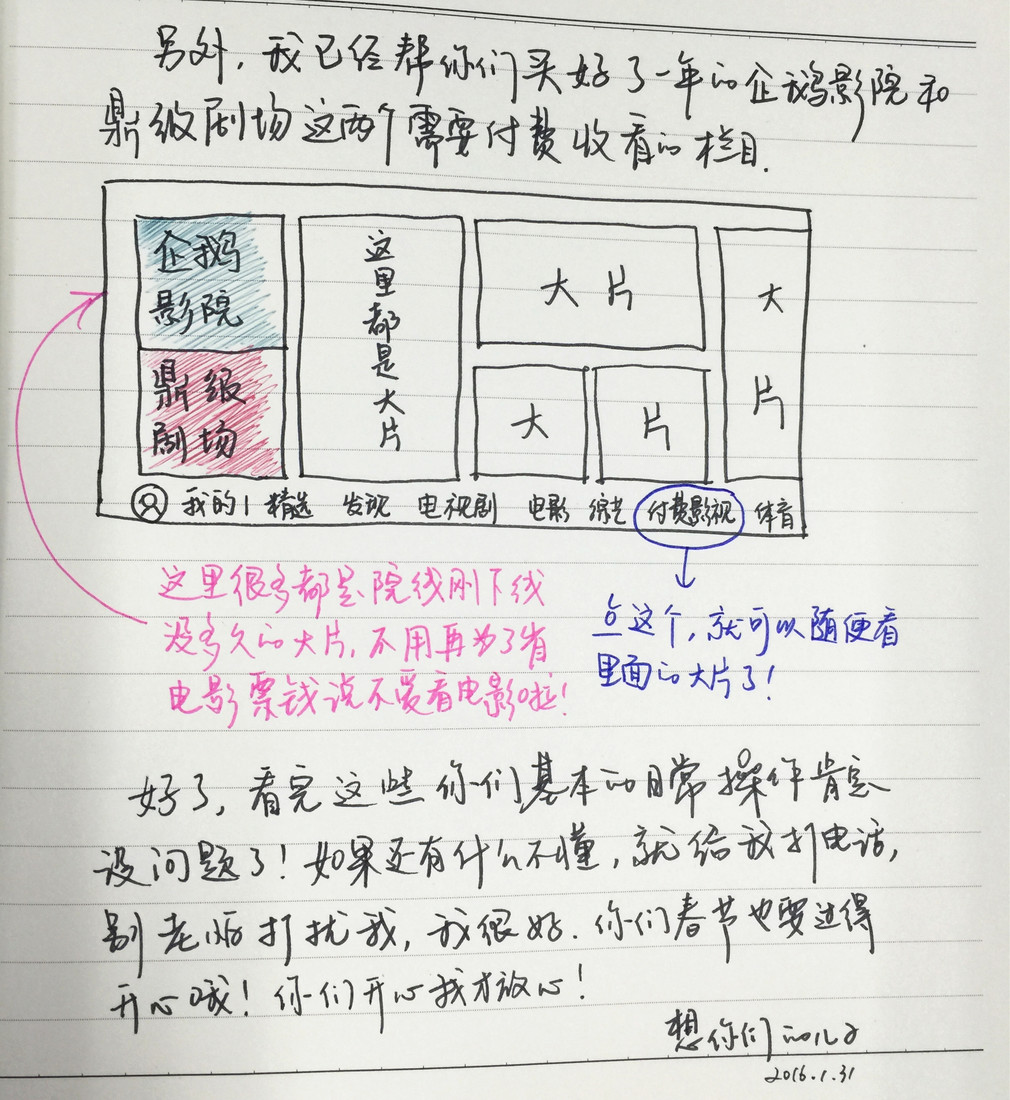 另外，我已经帮你们买好了一年的企鹅影院和
鼎级剧场这两个需要付费收看的栏目.
企鹅
影院
鼎级
剧场
这里都是大片
大片
大
片
大片
我的 | 精选 发现 电视剧 电影 综艺 付费影视 体育
这里很多都是院线刚下线
没多久的大片，不用再为了省
电影票钱说不爱看电影啦！
点这个，就可以随便看
里面的大片了！
好了，看完这些你们基本的日常操作肯定
没问题了！如果还有什么不懂，就给我打电话，
别老怕打扰我，我很好. 你们春节也要过得
开心哦！你们开心我才放心！
想你们的儿子
2016.1.31